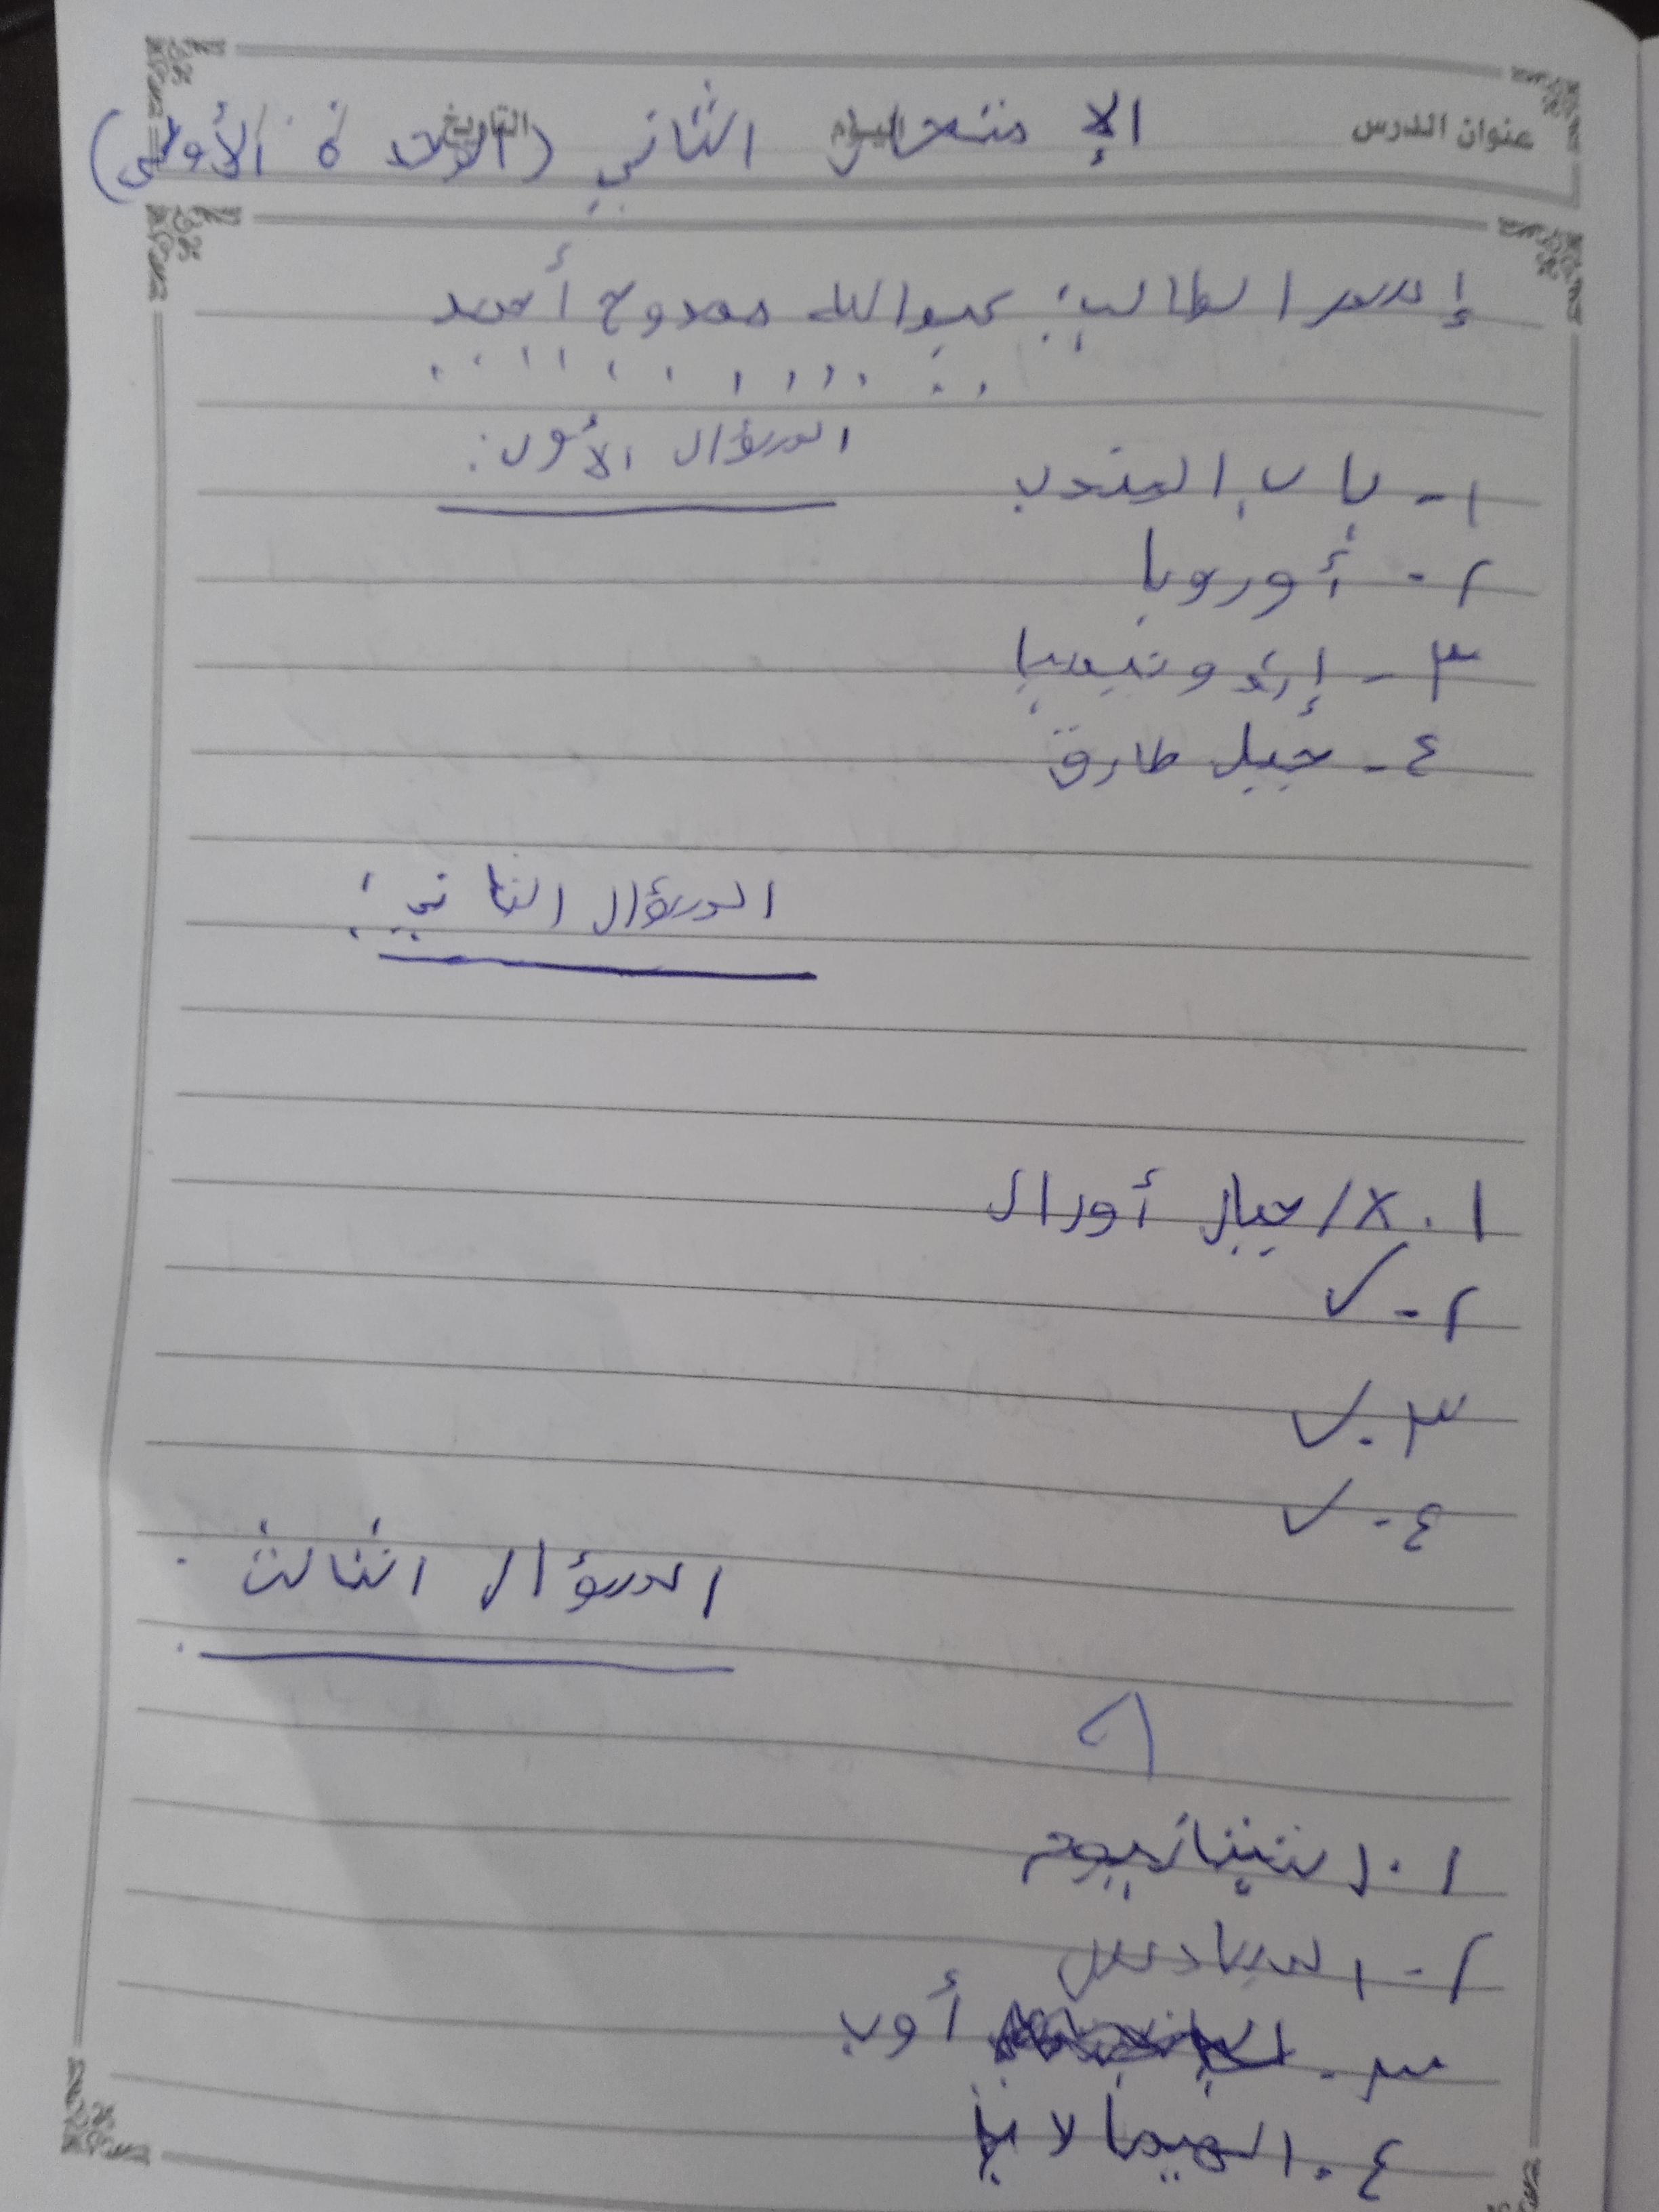 عنوان الدرس اليوم التاريخ
الإ متحان الثاني ( الوحدة الأولى )
إسم الطالب: عبدالله ممدوح أحمد
السؤال الأول:
١- باب المندب
٢- أوروبا
٣- إندونيسيا
٤- جبل طارق
السؤال الثاني:
١. X/ جبال أورال
٢- ✓
٣. ✓
٤- ✓
السؤال الثالث:
٢- السادس
٣- أوب
٤. الهيمالايا